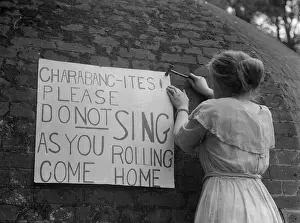 CHARABANC-ITES!
PLEASE
DO NOT SING
AS YOU ROLLING
COME HOME